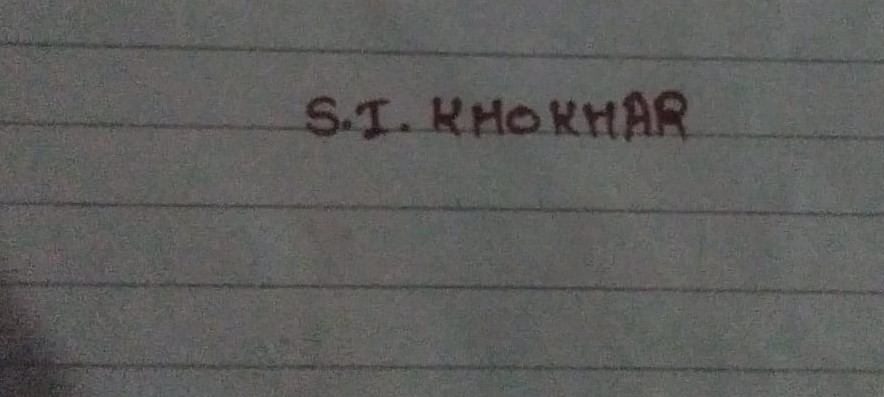 S.I. KHOKHAR